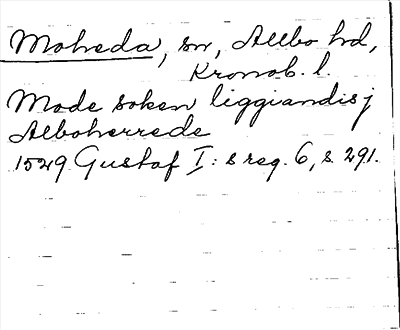 Moheda, sn, Allbo hd,
Kronob. l.
Mode soken liggiandis j
Alboherrede
1529 Gustaf I: s reg. 6, s 291.